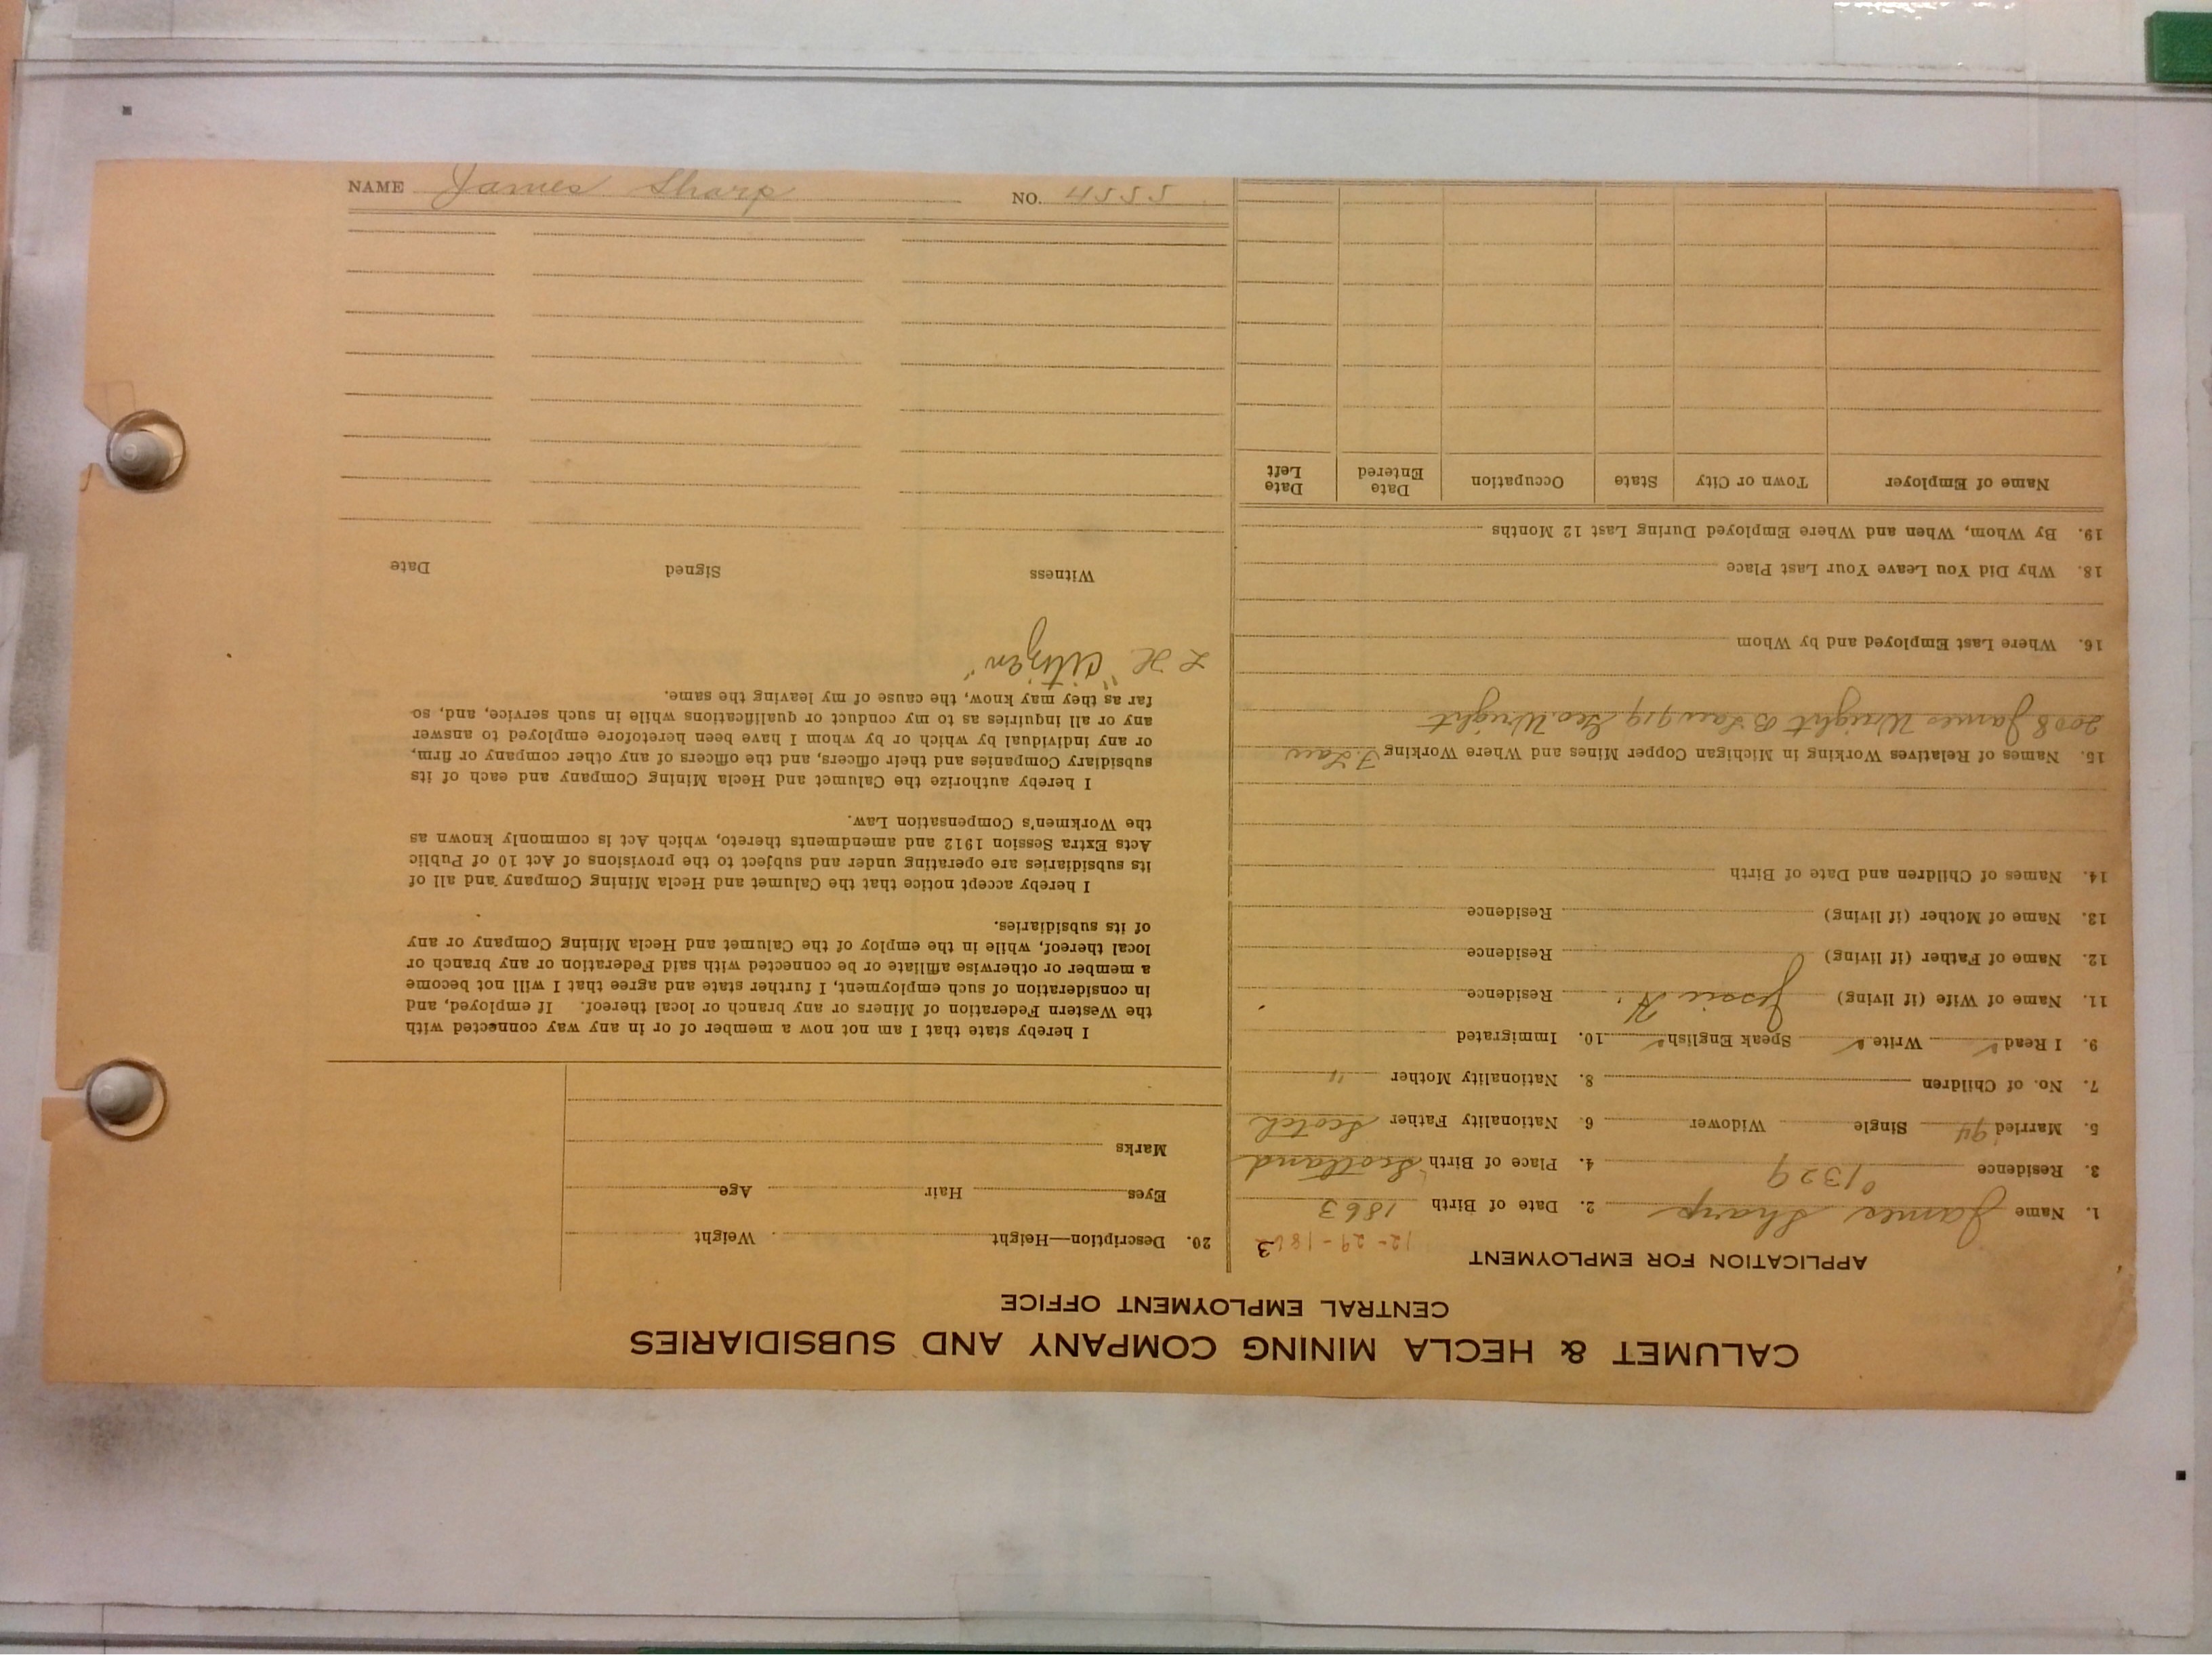 CALUMET & HECLA MINING COMPANY AND SUBSIDIARIES
CENTRAL EMPLOYMENT OFFICE
APPLICATION FOR EMPLOYMENT
12-29-1863
1. Name James Sharp 2. Date of Birth 1863
3. Residence 4. Place of Birth Scotland
5. Married '94 Single Widower 6. Nationality Father Scotch
7. No. of Children 8. Nationality Mother "
9. I Read ✓ Write ✓ Speak English ✓ 10. Immigrated
11. Name of Wife (if living) Jessie H. Residence
12. Name of Father (if living) Residence
13. Name of Mother (if living) Residence
14. Names of Children and Date of Birth
15. Names of Relatives Working in Michigan Copper Mines and Where Working F. Law
2008 James Wright B Law 919 Geo. Wright
16. Where Last Employed and by Whom
18. Why Did You Leave Your Last Place
19. By Whom, When and Where Employed During Last 12 Months
Name of Employer Town or City State Occupation Date Entered Date Left
20. Description—Height Weight
Eyes Hair Age
Marks
I hereby state that I am not now a member of or in any way connected with
the Western Federation of Miners or any branch or local thereof. If employed, and
in consideration of such employment, I further state and agree that I will not become
a member or otherwise affiliate or be connected with said Federation or any branch or
local thereof, while in the employ of the Calumet and Hecla Mining Company or any
of its subsidiaries.
I hereby accept notice that the Calumet and Hecla Mining Company and all of
its subsidiaries are operating under and subject to the provisions of Act 10 of Public
Acts Extra Session 1912 and amendments thereto, which Act is commonly known as
the Workmen's Compensation Law.
I hereby authorize the Calumet and Hecla Mining Company and each of its
subsidiary Companies and their officers, and the officers of any other company or firm,
or any individual by which or by whom I have been heretofore employed to answer
any or all inquiries as to my conduct or qualifications while in such service, and, so
far as they may know, the cause of my leaving the same.
"Citizen"
Witness Signed Date
NAME James Sharp NO. 4555